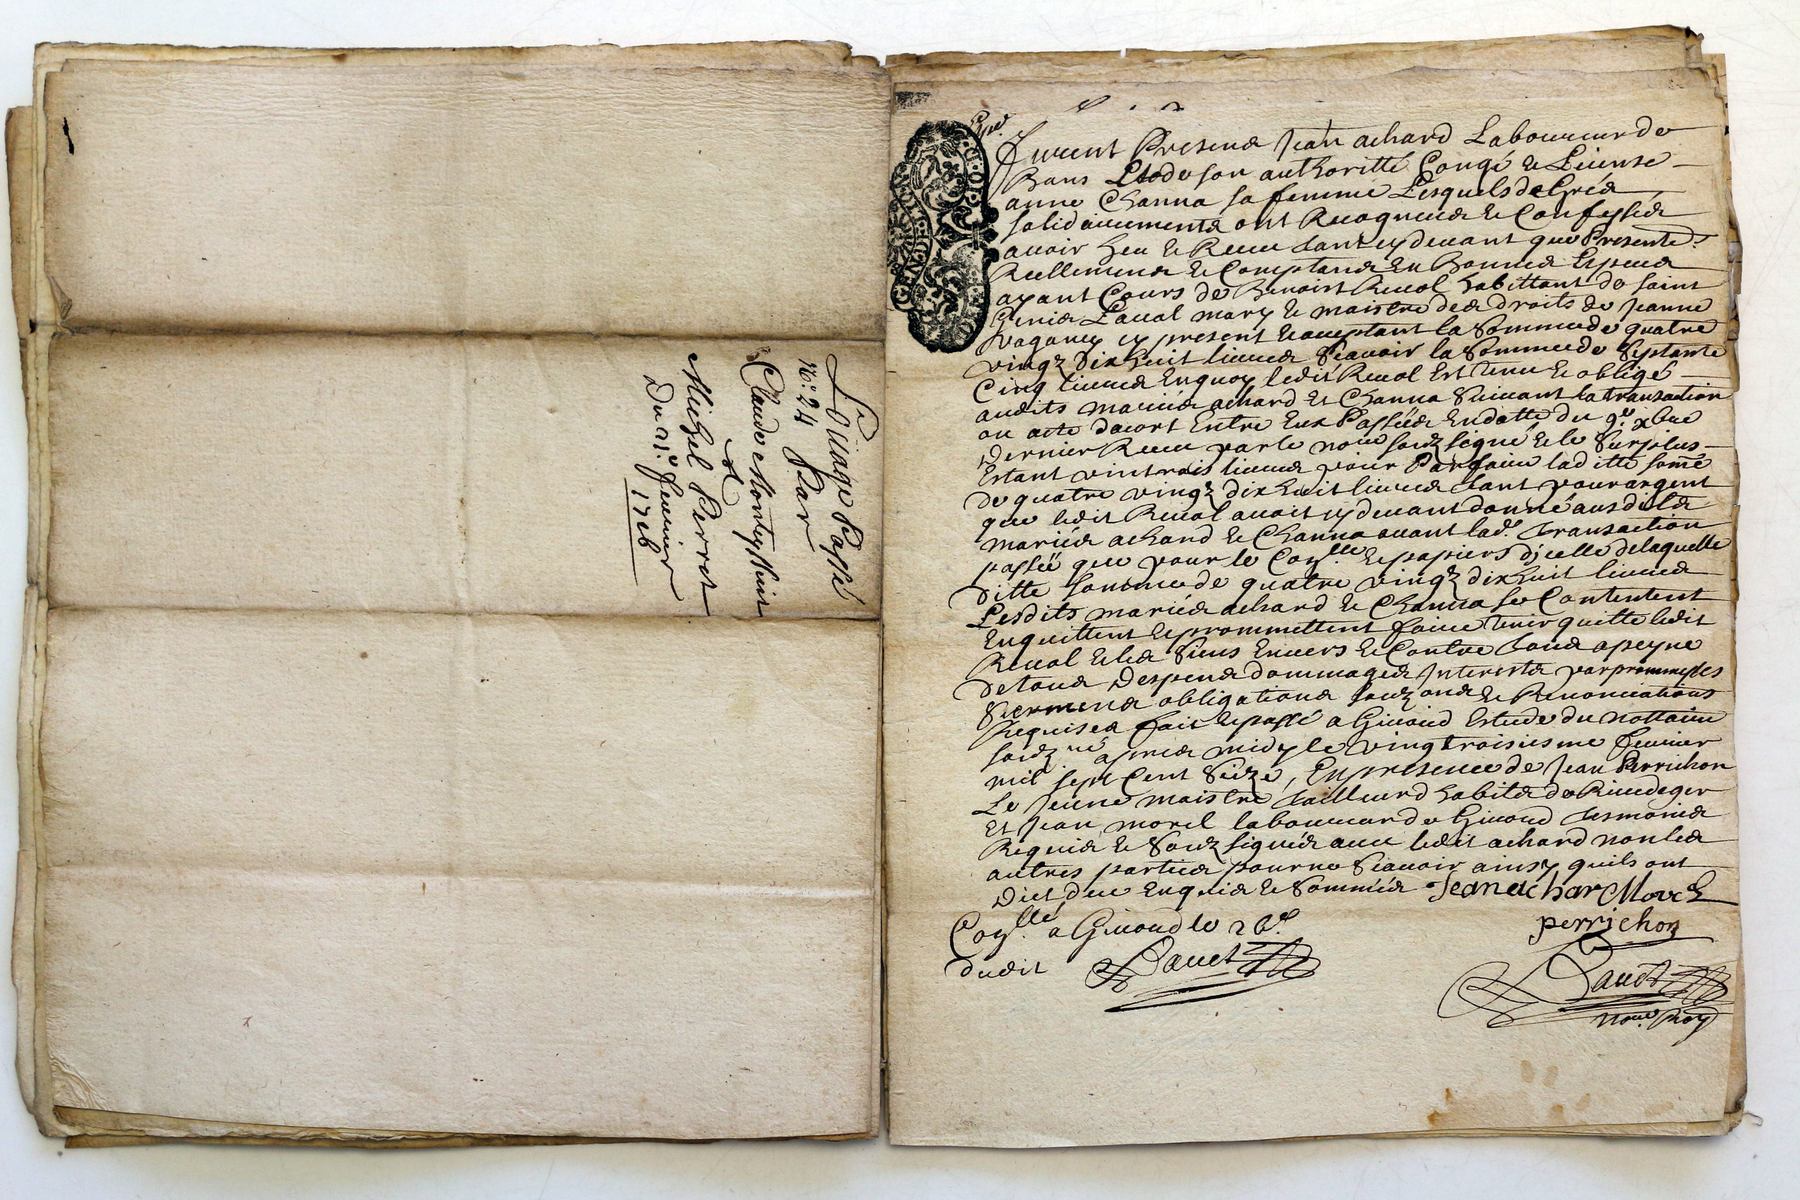 Louage Passé
n.o 24 Par
Claude Monteyssuit
a
Michel Perret
Du 21.e feurier
1726
GEN. DE LYON
furent Presens Jean achard Laboureur de
Bans Et de son authoritté Congé et License
anne Channa sa femme Lesquels de Grés
solidairements ont Recogneus et Confessés
avoir heu et Receu tant cy devant que Presentes
Reellemens et Comptans En Bonnes Especes
ayant Cours de Benoist Reuol habittant de saint
Genis Laual mary et maistre des droits de Jeanne
cy present et acceptant la Somme de quatre
vingz dix huit liures Scauoir la Somme de Septante
Cinq liures En quoy ledit Reuol Est tenu et obligé
audits mariés achard Et Channa Suiuant la transaction
ou acte dacort Entre Eux Passée En datte du 9.e xbre
dernier Receu par le no.re soubz signé et le Surplus
Estant vintrois liures pour Parfaire laditte some
de quatre vingz dix huit liures tant pour argent
que ledit Reuol auoit cy deuant donné ausdits
mariés achard et Channa auant lad. transaction
passée que pour le Con.lle et papiers dicelle de laquelle
ditte somme de quatre vingz dix huit liures
Lesdits mariés achard et Channa se Contentent
En quittent et promettent faire tenir quitte ledit
Reuol et les Siens Enuers et Contre tous a peyne
de tous despens dommages Interests par promesses
Sermens obligations soubz ons et Renonciations
Requises fait et passé a Giuord Estude du nottaire
soubz.né apres midy le vingtroisiesme feurier
mil sept Cent Seize, En presence de Jean Perrichon
Le Jeune maistre tailleurd habits de Riuedegier
Et Jean morel laboureur de Giuord tesmoins
Requis et Soubz signés auec ledit achard non les
autres parties pour ne Scauoir ainsy quils ont
Dict de ce Enquis et Sommés Jean achar Morel
Con.llé a Giuord le 26.e perrichon
dudit Dauet Dauet
no.re Roy